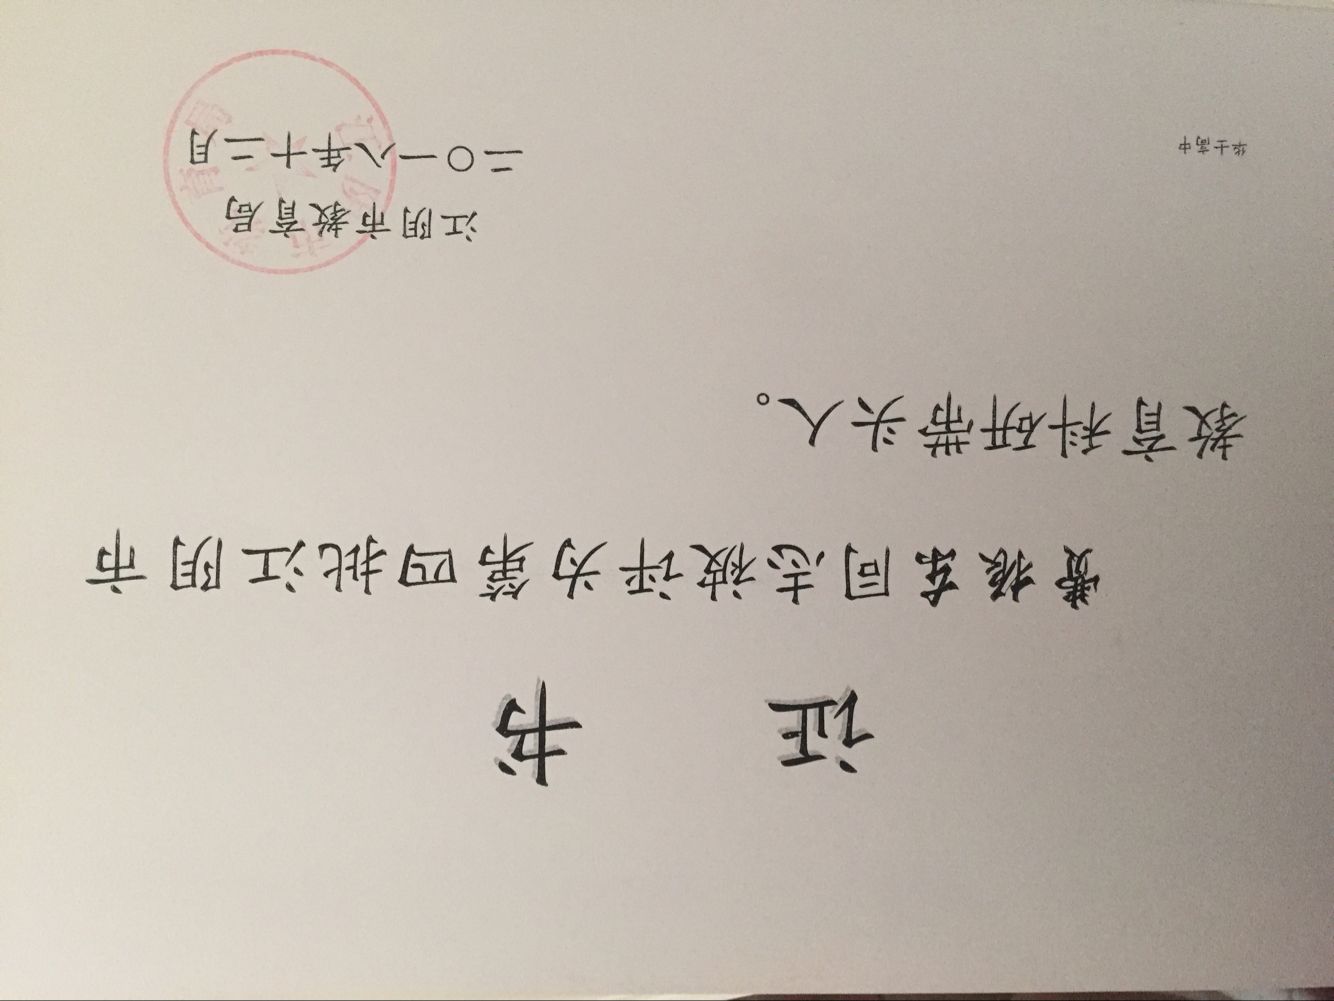 证 书
黄振东同志被评为第四批江阴市
教育科研带头人。
江阴市教育局
二〇一八年十二月
华士高中
江阴市教育局